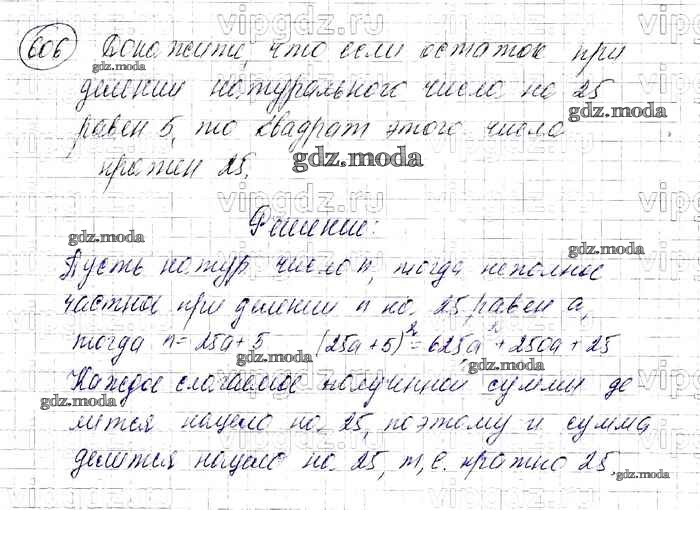 606 Докажите, что если остаток при
делении натурального числа на 25
равен 5, то квадрат этого числа
кратен 25.
Решение:
Пусть натур. число n, тогда неполное
частное при делении n на 25 равен a,
тогда n = 25a + 5 (25a + 5)² = 625a² + 250a + 25
Каждое слагаемое полученной суммы де
лится нацело на 25, поэтому и сумма
делится нацело на 25, т.е. кратно 25.
vipgdz.ru
gdz.moda